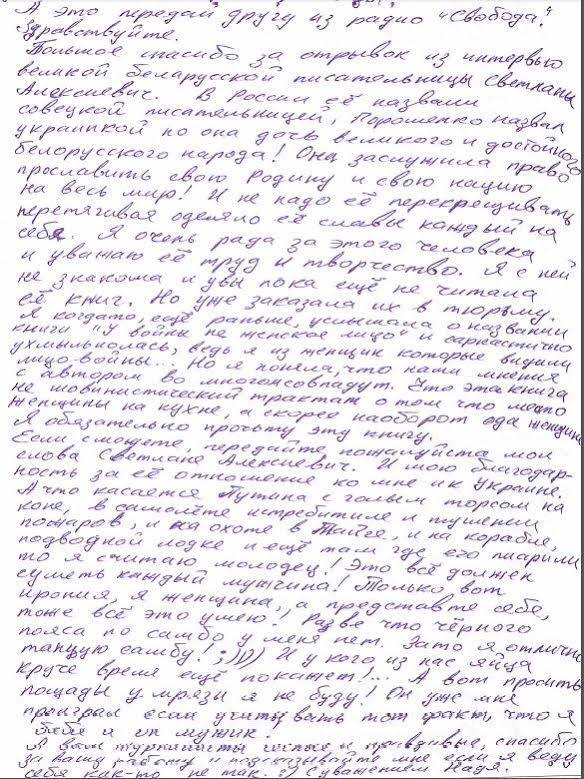 А это передай другу из радио "Свобода".
Здравствуйте.
Большое спасибо за отрывок из интервью
великой беларусской писательницы Светланы
Алексиевич. В России её назвали
совецкой писательницей, Порошенко назвал
украинкой но она дочь великого и достойного
белорусского народа! Она заслужила право
прославить свою Родину и свою нацию
на весь мир! И не надо её перекрещивать
перетягивая одеяло её славы каждый на
себя. Я очень рада за этого человека
и уважаю её труд и творчество. Я с ней
не знакома и увы пока ещё не читала
её книг. Но уже заказала их в тюрьму.
Я когдато, ещё раньше, услышала о названии
книги "У войны не женское лицо" и саркастично
ухмыльнолась, ведь я из женщин которые видили
лицо войны... Но я поняла, что наши мнения
с автором во многом совпадут. Что эта книга
не шовинистический трактат о том что место
женщины на кухне, а скорее наоборот ода женщине
Я обязательно прочту эту книгу.
Если сможете, передайте пожалуйста мои
слова Светлане Алексиевич. И мою благодар-
ность за её отношение ко мне и к Украине.
А что касается Путина с голым торсом на
коне, в самолёте истребителе и тушении
пожаров, и на охоте в Тайге, и на корабле,
подводной лодке и ещё там где его пиарили
то я считаю молодец! Это всё должен
суметь каждый мужчина! Только вот
ирония, я женщина, а представте себе,
тоже всё это умею! Разве что чёрного
пояса по самбо у меня нет. Зато я отлично
танцую самбу! ;)))) И у кого из нас яйца
круче время ещё покажет!... А вот просить
пощады у мрази я не буду! Он уже мне
проиграл если учитывать тот факт, что я
баба а он мужик.
А вам журналисты честные и правдивые, спасибо
за вашу работу и подсказывайте мне если я веду
себя как-то не так. :) С уважением Надя.